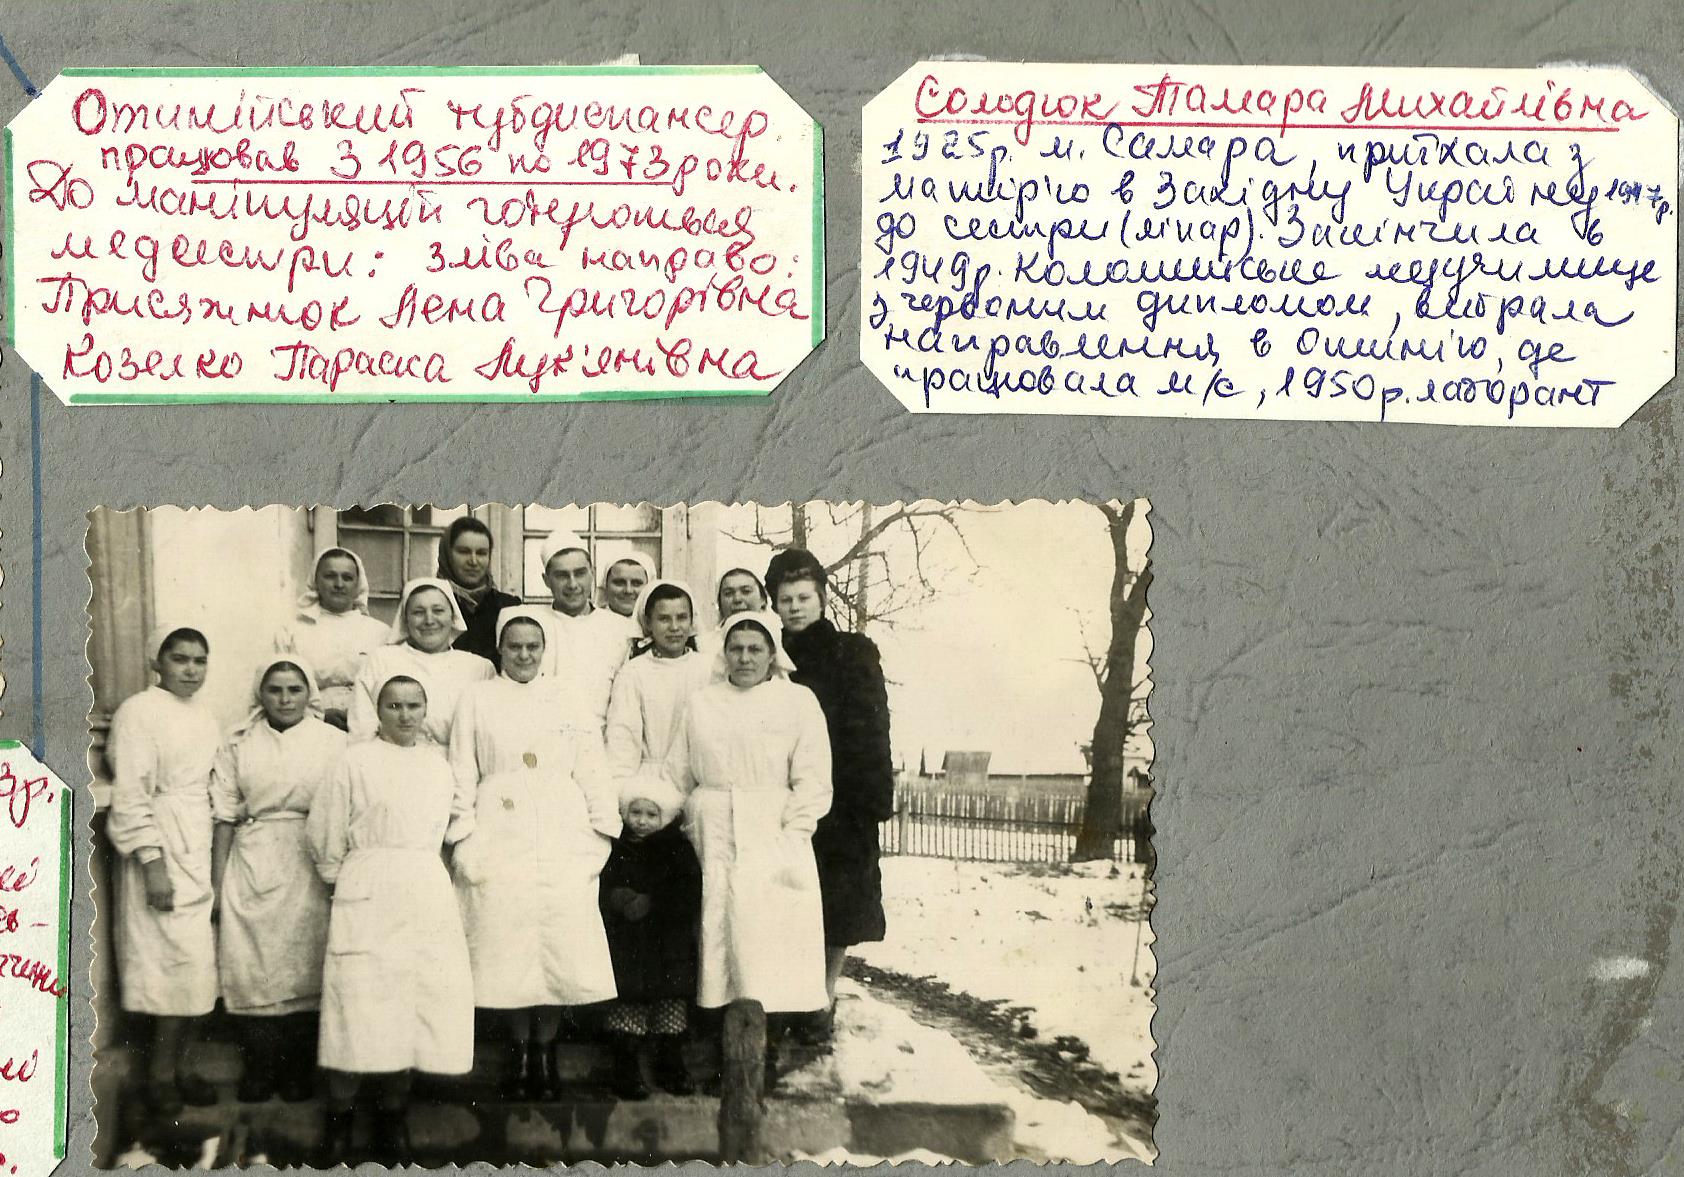 Отинійський тубдиспансер
працював з 1956 по 1973 роки.
До маніпуляцій готуються
медсестри: зліва направо:
Присяжнюк Лена Григорівна
Козелко Параска Лук'янівна
Солодюк Тамара Михайлівна
1925р. м. Самара, приїхала з
матір'ю в Західну Україну 1947р.
до сестри (лікар). Закінчила в
1949р. Коломийське медучилище
з червоним дипломом, вибрала
направлення в Отинію, де
працювала м/с, 1950р. лаборант
3р.